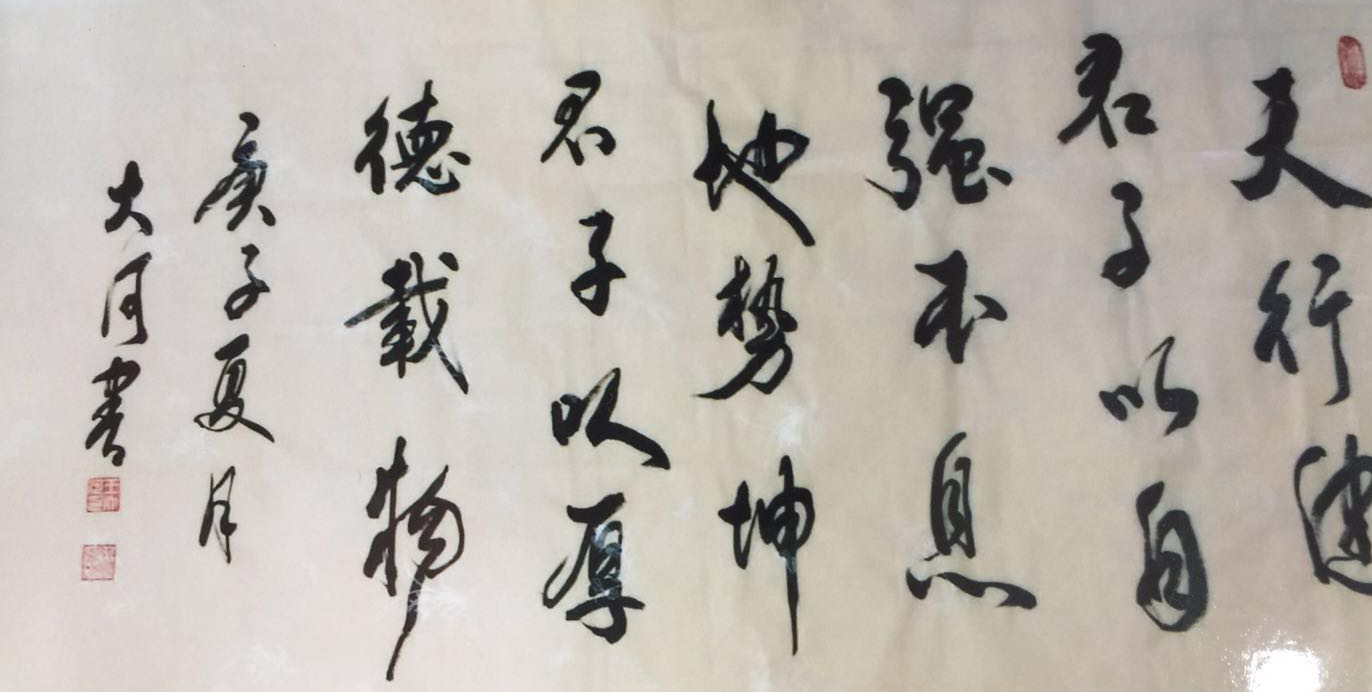 天行健
君子以自
强不息
地势坤
君子以厚
德载物
庚子夏月
大河书